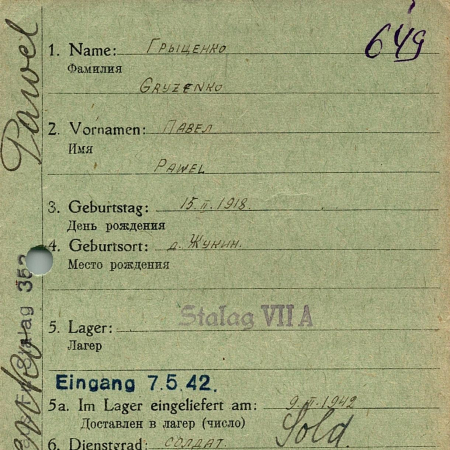 649
1. Name: Грыценко
Фамилия
GRYZENKO
2. Vornamen: Павел
Имя
PAWEL
3. Geburtstag: 15.II.1918.
День рождения
4. Geburtsort: д. Жукин.
Место рождения
Stalag VII A
5. Lager:
Лагер
Eingang 7.5.42.
5a. Im Lager eingeliefert am: 9.II.1942
Доставлен в лагер (число)
Sold.
6. Dienstgrad: СОЛДАТ.
Pawel